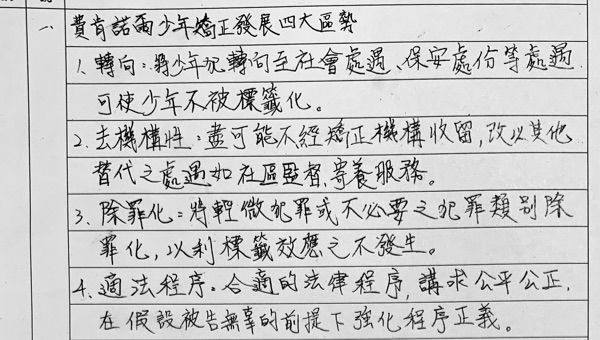 一、費肯諾爾少年矯正發展四大區勢
1、轉向：將少年犯轉向至社會處遇、保安處份等處遇
可使少年不被標籤化。
2、去機構性：盡可能不經矯正機構收留,改以其他
替代之處遇如社區監督,寄養服務。
3、除罪化：將輕微犯罪或不必要之犯罪類別除
罪化,以利標籤效應之不發生。
4、適法程序：合適的法律程序,講求公平公正,
在假設被告無辜的前提下強化程序正義。